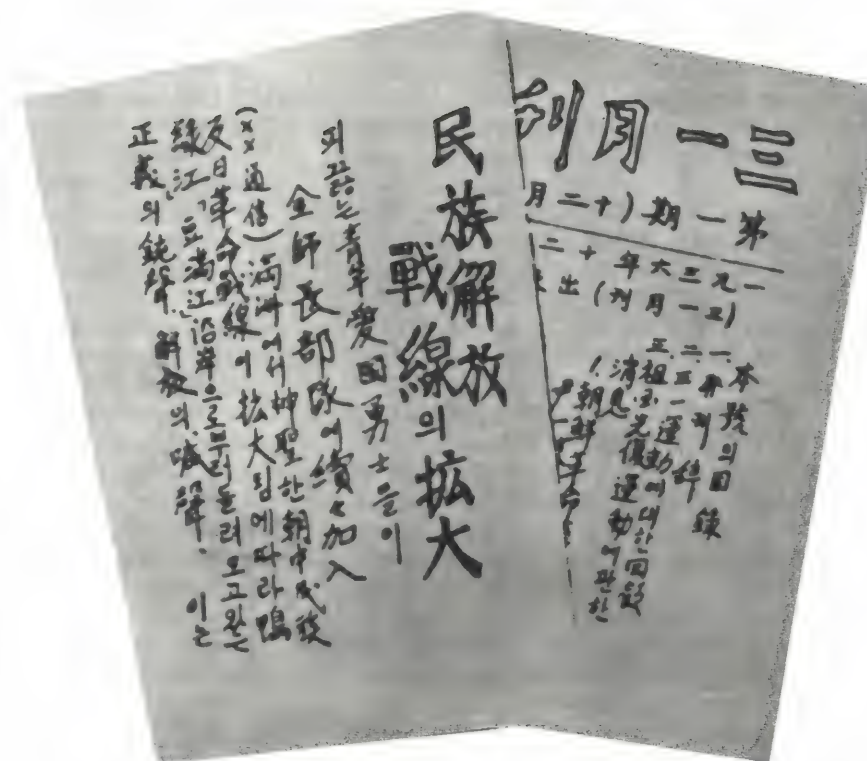 三一月刊
第一期(十二月
一九三六年十二
(三一月刊)出
本號의目錄
一 創刊辭
二 三一運動에대한回敍
三 祖國光復運動에관한
消息
1. 朝鮮革命
民族解放
戰線의拡大
피끓는青年愛国勇士들이
金師長部隊에續々加入
(××通信)滿洲에서神聖한朝中民族
反日革命戰線이拡大됨에따라鴨
緑江、豆満江沿岸으로부터들려오고있는
正義의銃聲、解放의喊聲、이는